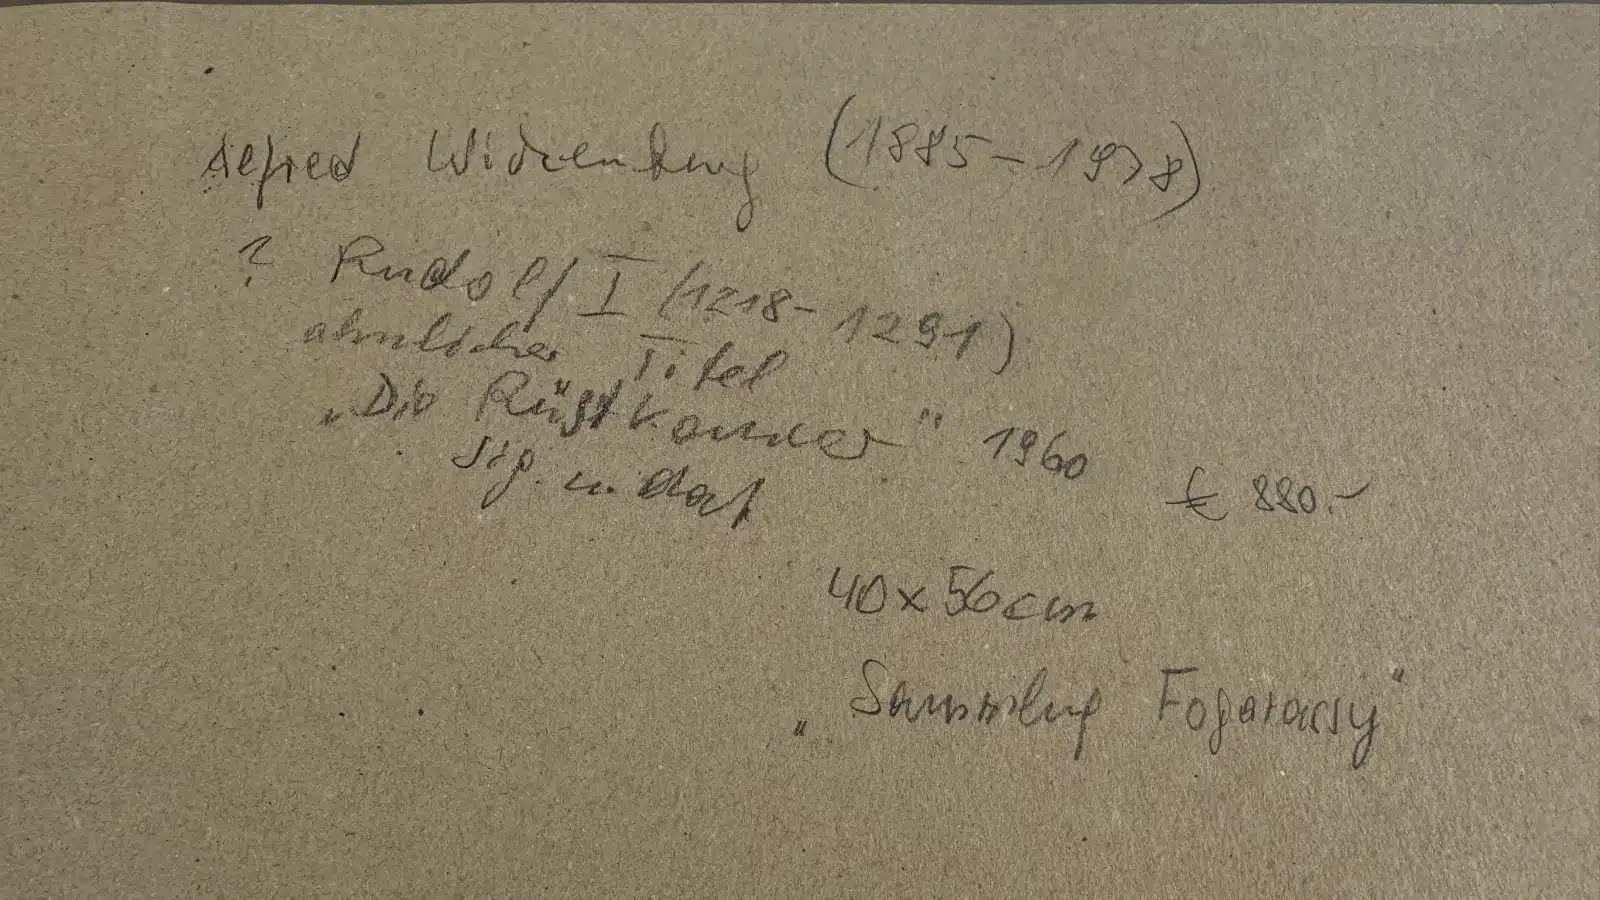 Alfred Wickenburg (1885-1978)
? Rudolf I (1218-1291)
ähnlicher Titel
„Die Rüstkammer" 1960
sig. u. dat
€ 880.-
40x56cm
„Sammlung Fogarassy"